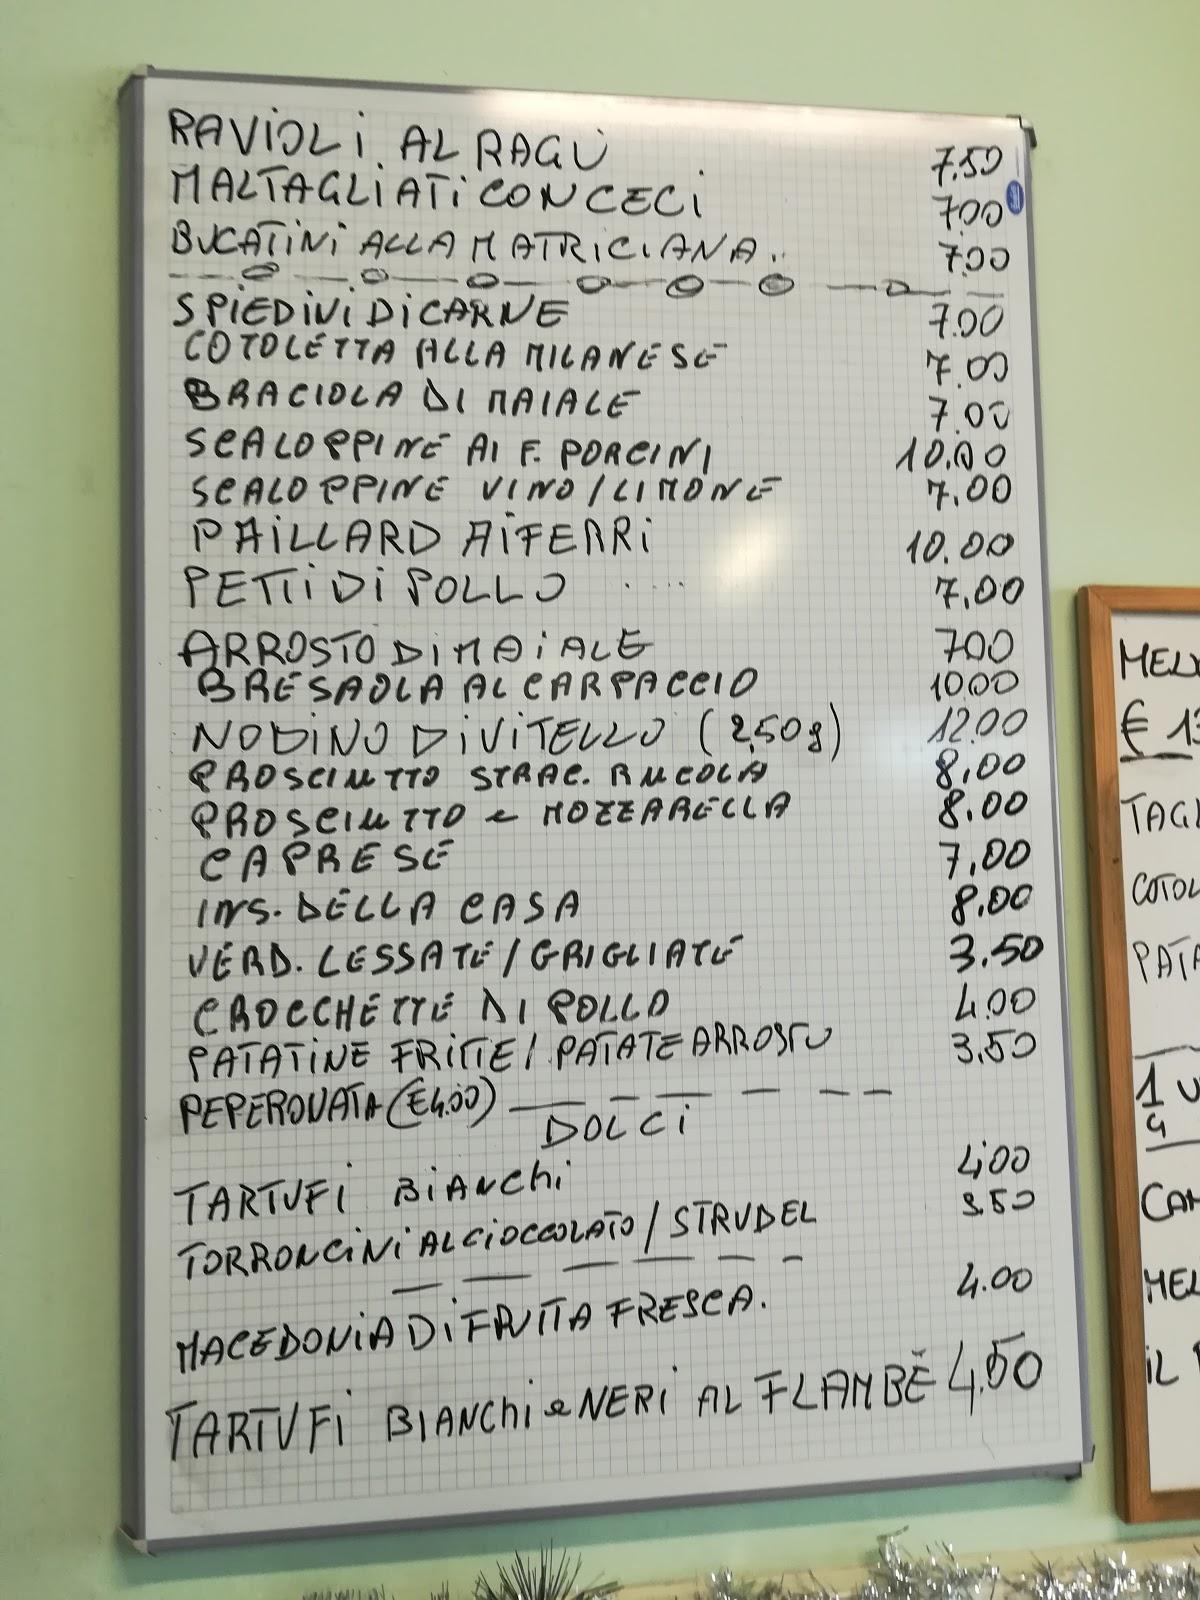 RAVIOLI AL RAGÙ 7.50
MALTAGLIATI CON CECI 7.00
BUCATINI ALLA MATRICIANA.. 7.00
SPIEDINI DI CARNE 7.00
COTOLETTA ALLA MILANESE 7.00
BRACIOLA DI MAIALE 7.00
SCALOPPINE AI F. PORCINI 10.00
SCALOPPINE VINO/LIMONE 7.00
PAILLARD AI FERRI 10.00
PETTI DI POLLO ..... 7,00
ARROSTO DI MAIALE 7.00
BRESAOLA AL CARPACCIO 10.00
NODINO DI VITELLO (250g) 12.00
PROSCIUTTO STRAC. RUCOLA 8,00
PROSCIUTTO e MOZZARELLA 8.00
CAPRESE 7,00
INS. DELLA CASA 8,00
VERD. LESSATE/GRIGLIATE 3.50
CROCCHETTE DI POLLO 4.00
PATATINE FRITTE/PATATE ARROSTO 3.50
PEPERONATA (€4.00)
DOLCI
TARTUFI BIANCHI 4,00
TORRONCINI AL CIOCCOLATO/STRUDEL 3.50
MACEDONIA DI FRUTTA FRESCA. 4.00
TARTUFI BIANCHI e NERI AL FLAMBÈ 4.50
€ 13